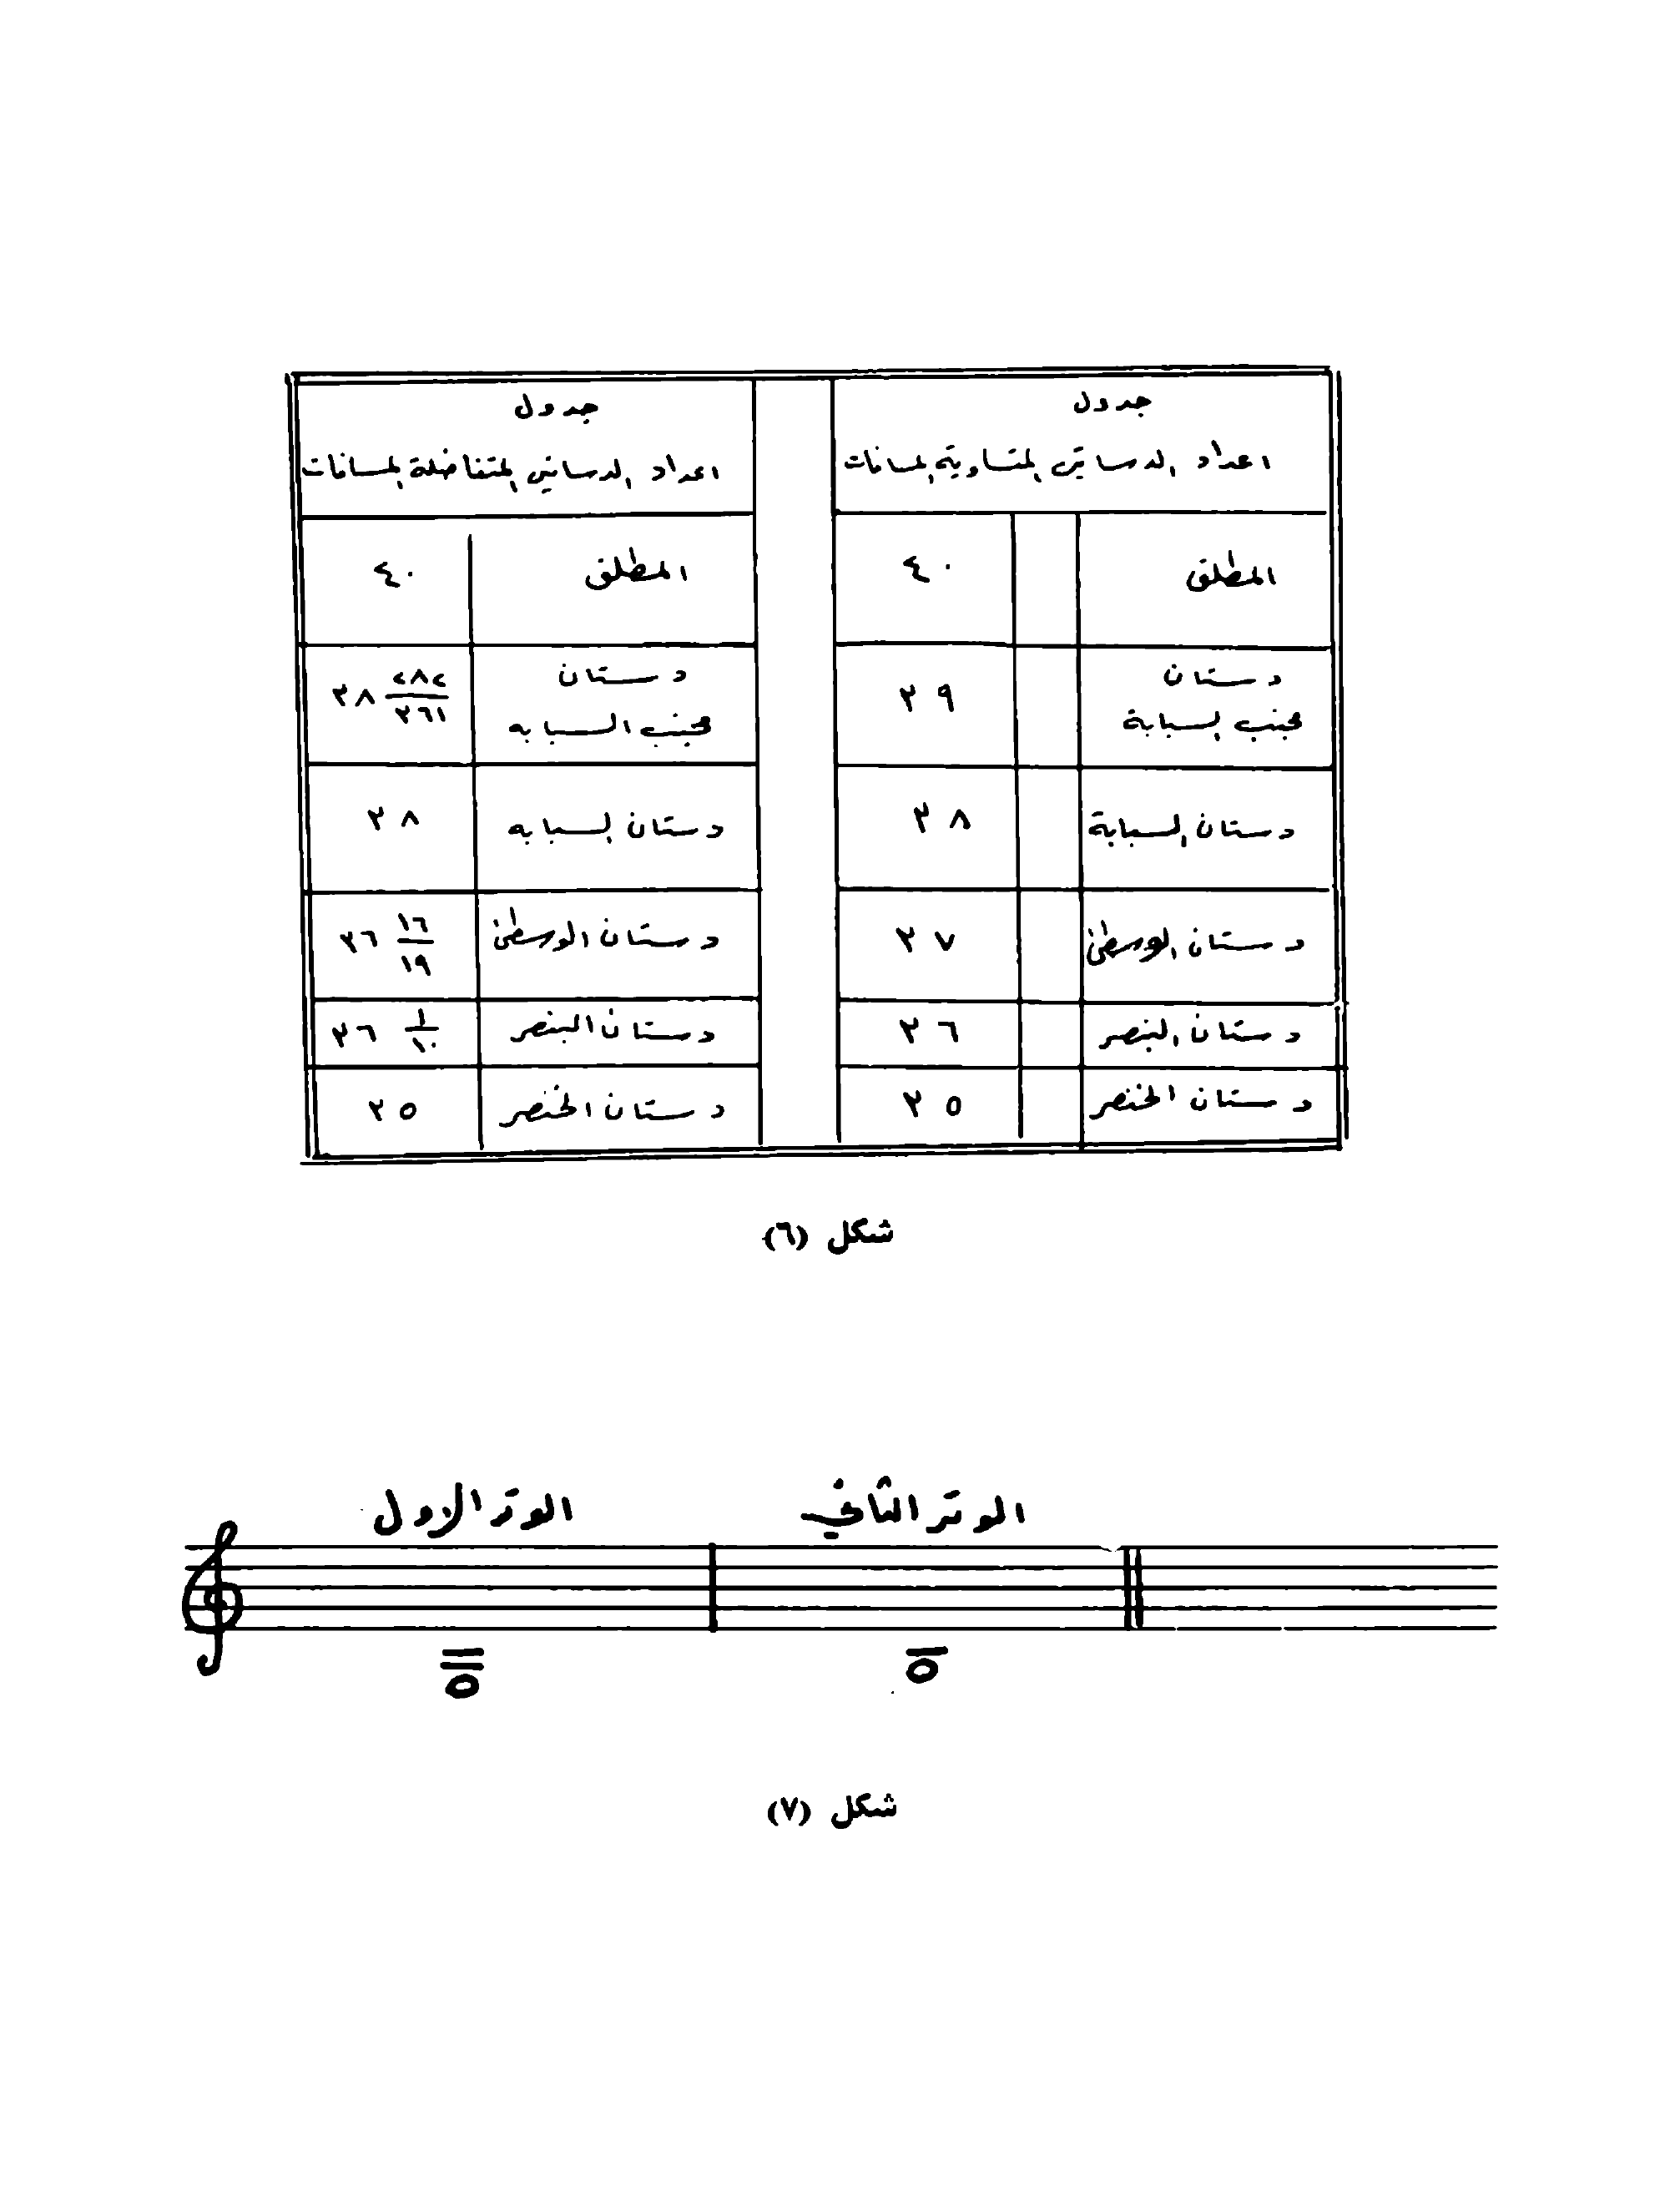 جدول
اعداد الدساتين المتساوية المسافات
المطلق ٤٠
دستان
مجنب السبابة ٣٩
دستان السبابة ٣٨
دستان الوسطى ٣٧
دستان البنصر ٣٦
دستان الخنصر ٣٥
جدول
اعداد الدساتين المتفاضلة المسافات
المطلق ٤٠
دستان
مجنب السبابه ٣٨ ٢٨٢/٣٦١
دستان السبابه ٣٨
دستان الوسطى ٣٦ ١٦/١٩
دستان البنصر ٣٦ ١/١٠
دستان الخنصر ٣٥
شكل (٦)
الوتر الاول
الوتر الثاني
شكل (٧)